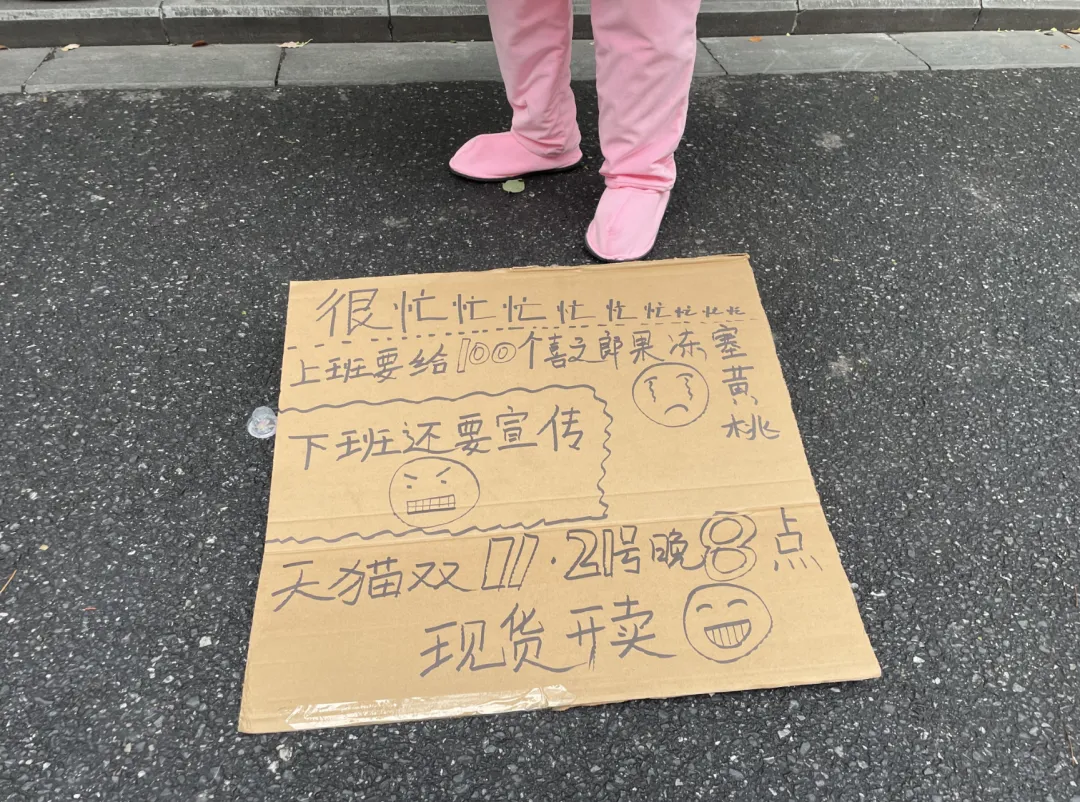 很忙忙忙忙忙忙忙忙忙
上班要给100个喜之郎果冻塞黄桃
下班还要宣传
天猫双11·21号晚8点
现货开卖